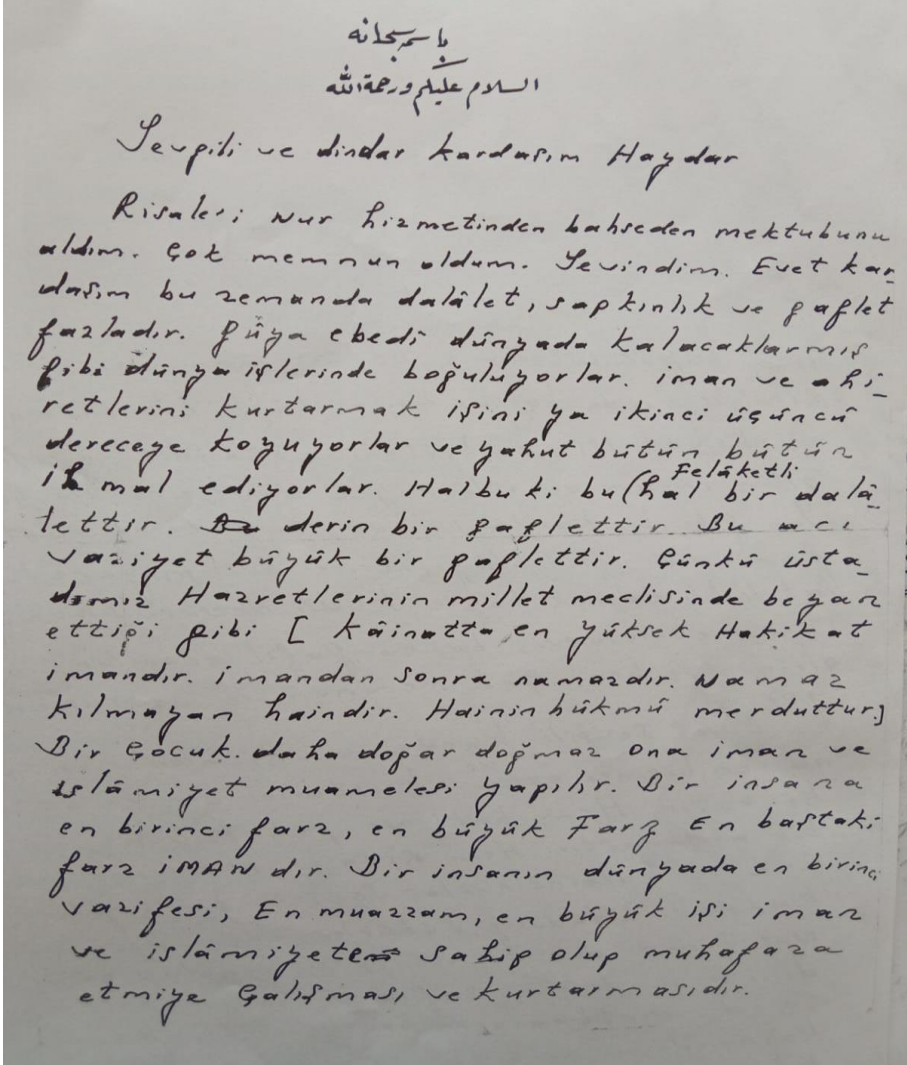 باسمه سبحانه
السلام عليكم ورحمة الله
Sevgili ve dindar kardaşım Haydar
Risalei Nur hizmetinden bahseden mektubunu
aldım. Çok memnun oldum. Sevindim. Evet kar-
daşım bu zemanda dalâlet, sapkınlık ve gaflet
fazladır. gûya ebedî dünyada kalacaklarmış
gibi dünya işlerinde boğuluyorlar. iman ve ahi-
retlerini kurtarmak işini ya ikinci üçüncü
dereceye koyuyorlar ve yahut bütün bütün
ihmal ediyorlar. Halbuki bu (hal Felâketli bir dalâ-
lettir. derin bir gaflettir. Bu acı
vaziyet büyük bir gaflettir. Çünkü üsta-
dımız Hazretlerinin millet meclisinde beyan
ettiği gibi [ Kâinatta en yüksek Hakikat
imandır. imandan sonra namazdır. Namaz
kılmayan haindir. Hainin hükmü merduttur.]
Bir Çocuk. daha doğar doğmaz ona iman ve
islâmiyet muamelesi yapılır. Bir insana
en birinci farz, en büyük Farz En baştaki
farz iMAN dır. Bir insanın dünyada en birinci
vazifesi, En muazzam, en büyük işi iman
ve islâmiyete sahip olup muhafaza
etmiye Çalışması ve kurtarmasıdır.